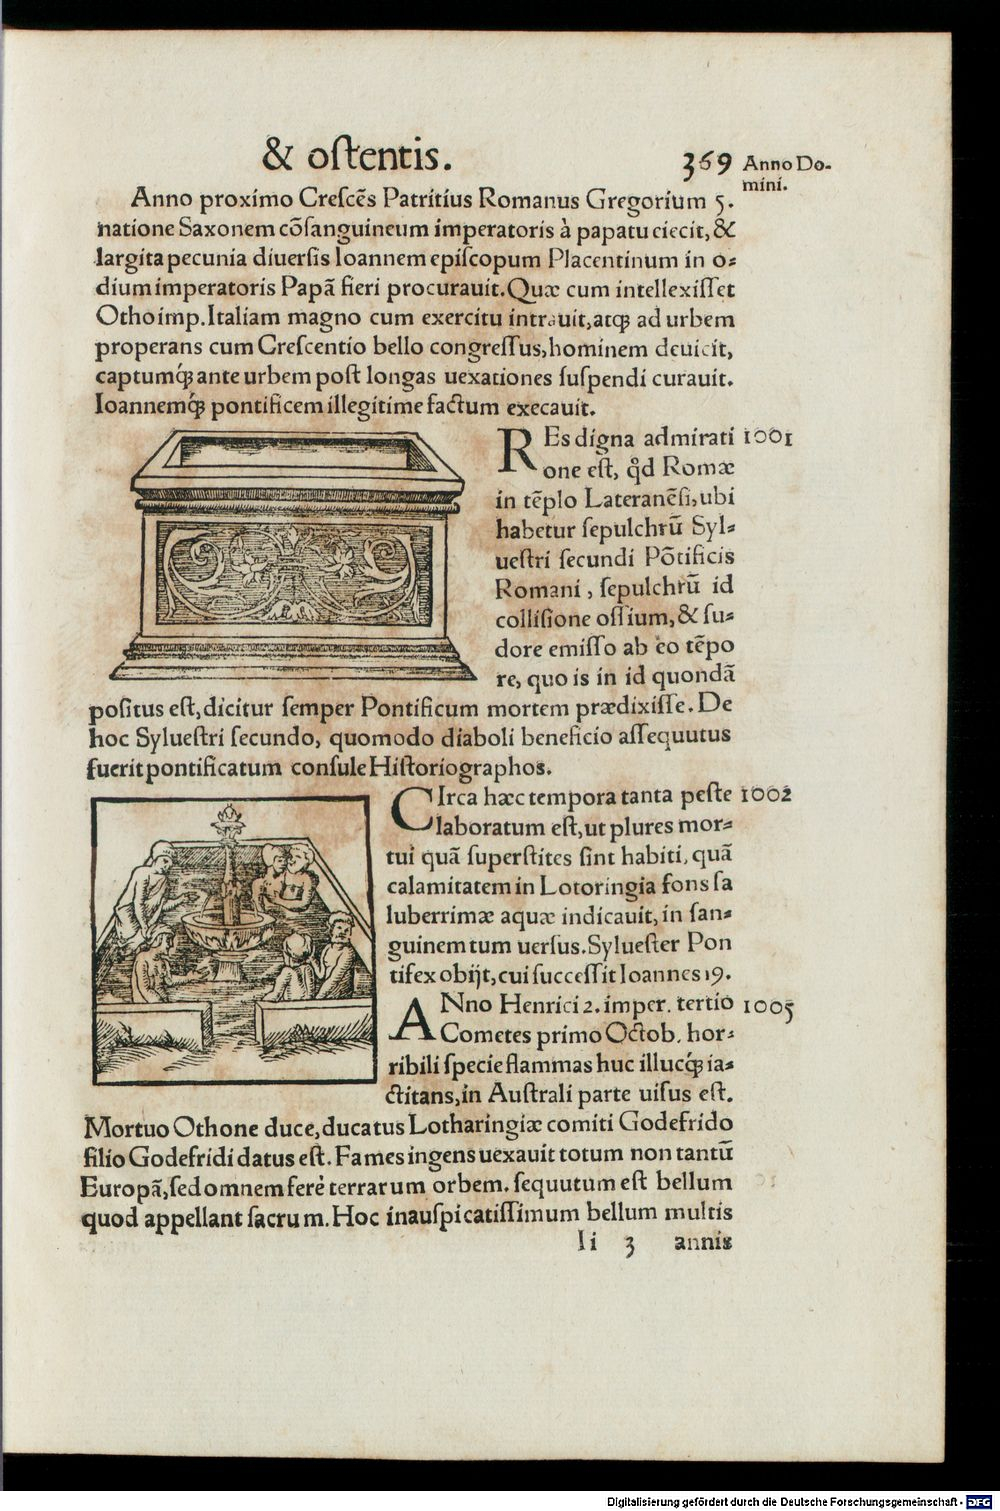 & oſtentis. 369 Anno Do-
mini.
Anno proximo Creſcẽs Patritius Romanus Gregorium 5.
natione Saxonem cõſanguineum imperatoris à papatu eiecit, &
largita pecunia diuerſis Ioannem epiſcopum Placentinum in o⸗
dium imperatoris Papã fieri procurauit. Quæ cum intellexiſſet
Otho imp. Italiam magno cum exercitu intrauit, atq; ad urbem
properans cum Creſcentio bello congreſſus, hominem deuicit,
captumq́; ante urbem poſt longas uexationes ſuſpendi curauit.
Ioannemq́; pontificem illegitime factum execauit.
REs digna admirati 1001
one eſt, qd̊ Romæ
in tẽplo Lateranẽſi, ubi
habetur ſepulchrũ Syl⸗
ueſtri ſecundi Põtificis
Romani, ſepulchrũ id
colliſione oſſium, & ſu⸗
dore emiſſo ab eo tẽpo
re, quo is in id quondã
poſitus eſt, dicitur ſemper Pontificum mortem prædixiſſe. De
hoc Sylueſtri ſecundo, quomodo diaboli beneficio aſſequutus
fuerit pontificatum conſule Hiſtoriographos.
CIrca hæc tempora tanta peſte 1002
laboratum eſt, ut plures mor⸗
tui quã ſuperſtites ſint habiti, quã
calamitatem in Lotoringia fons ſa
luberrimæ aquæ indicauit, in ſan⸗
guinem tum uerſus. Sylueſter Pon
tifex obijt, cui ſucceſſit Ioannes 19.
ANno Henrici 2. imper. tertio 1005
Cometes primo Octob. hor⸗
ribili ſpecie flammas huc illucq́; ia⸗
ctitans, in Auſtrali parte uiſus eſt.
Mortuo Othone duce, ducatus Lotharingiæ comiti Godefrido
filio Godefridi datus eſt. Fames ingens uexauit totum non tantũ
Europã, ſed omnem ferè terrarum orbem. ſequutum eſt bellum
quod appellant ſacrum. Hoc inauſpicatiſſimum bellum multis
Ii 3 annis
Digitalisierung gefördert durch die Deutsche Forschungsgemeinschaft - DFG